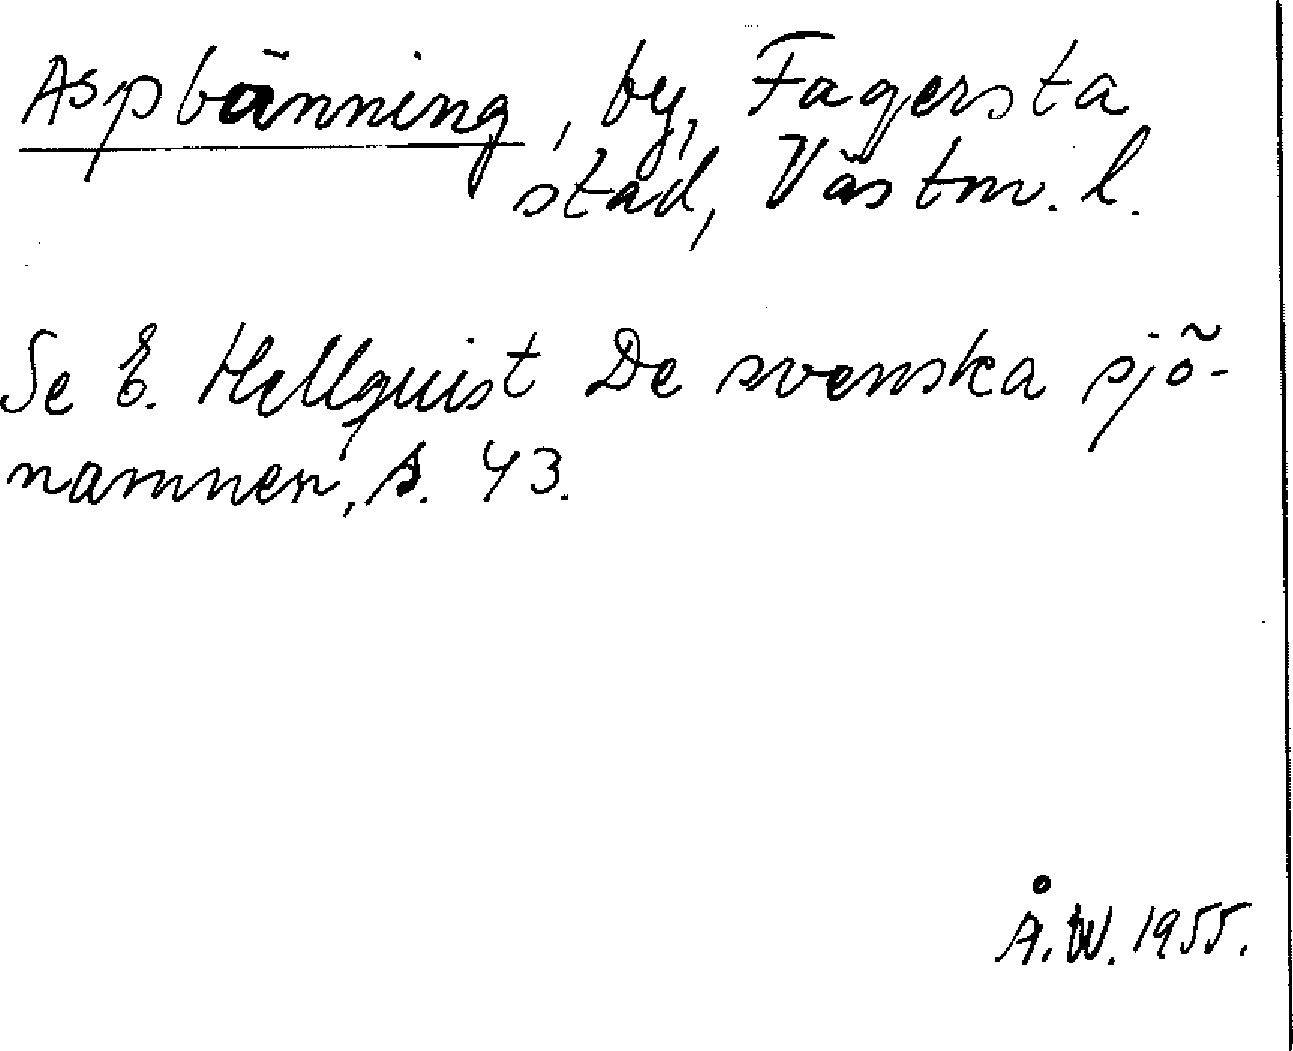 Aspbänning, by, Fagersta
stad, Västm. l.
Se E. Hellquist De svenska sjö-
namnen, s. 43.
Å. W. 1955.